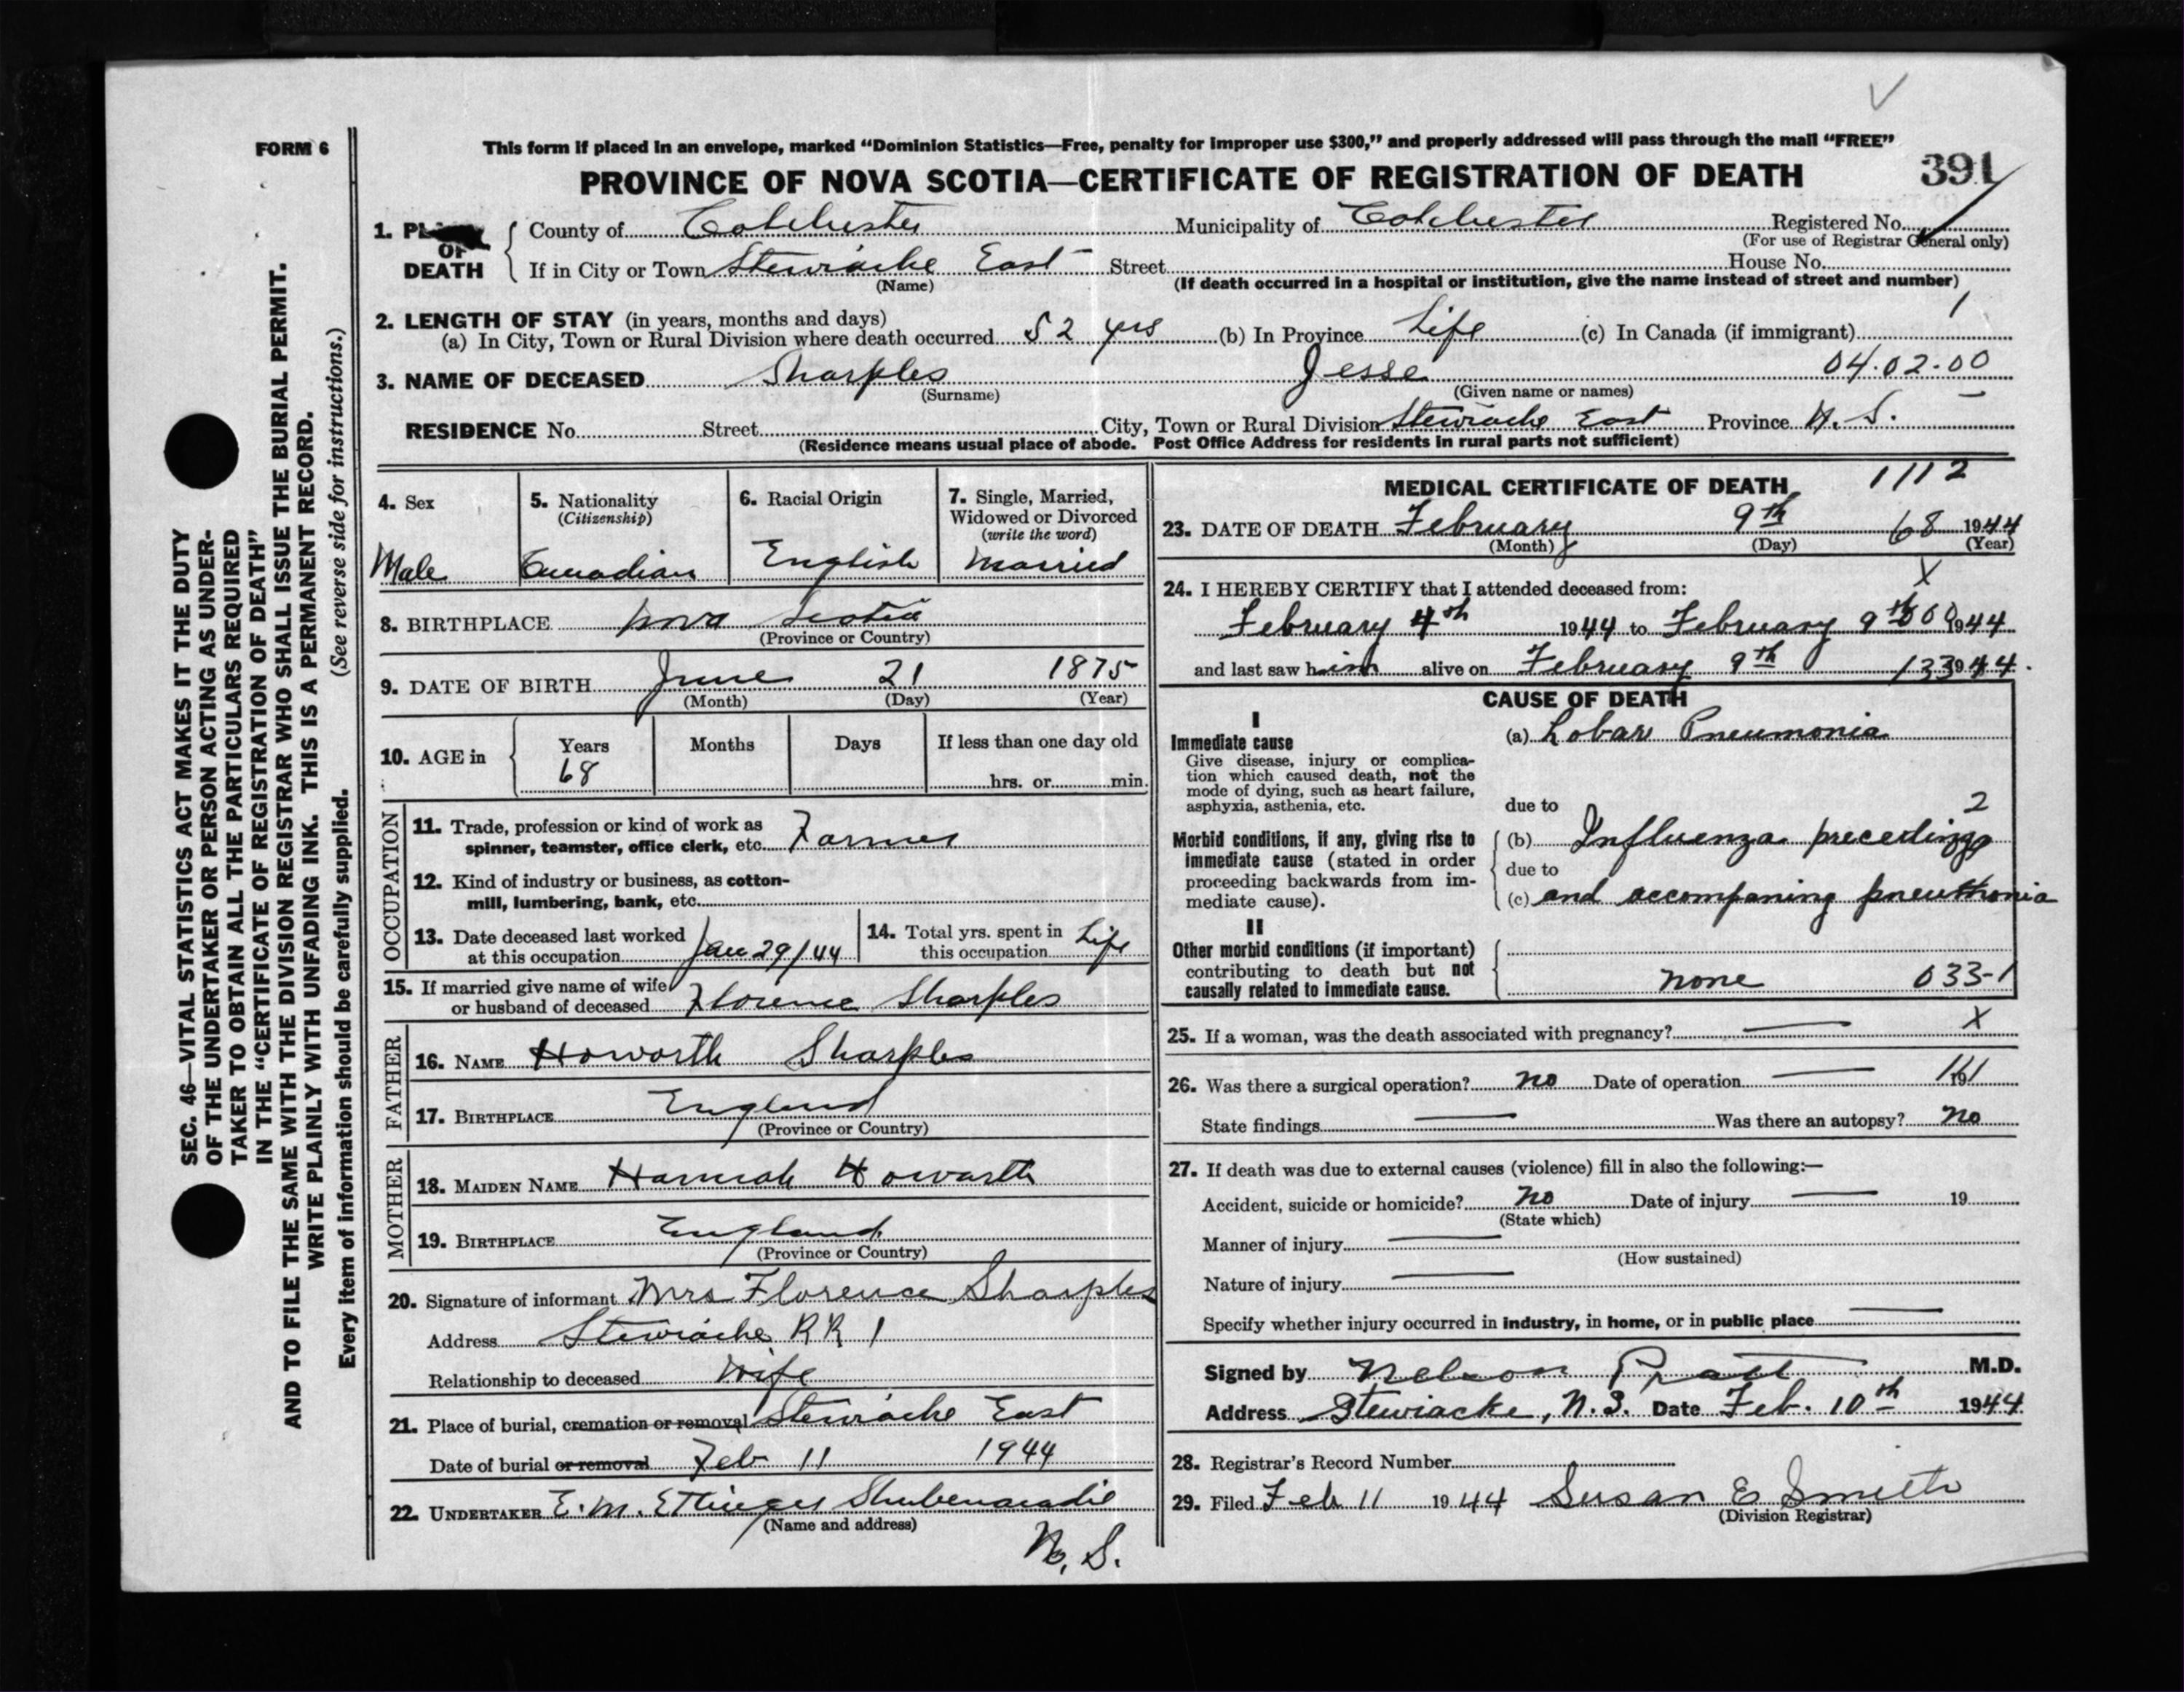 FORM 6
This form if placed in an envelope, marked “Dominion Statistics—Free, penalty for improper use $300,” and properly addressed will pass through the mail “FREE”
PROVINCE OF NOVA SCOTIA—CERTIFICATE OF REGISTRATION OF DEATH
391
1. PL
OF
DEATH
County of Colchester Municipality of Colchester Registered No.
(For use of Registrar General only)
If in City or Town Stewiacke East Street House No.
(Name) (If death occurred in a hospital or institution, give the name instead of street and number)
2. LENGTH OF STAY (in years, months and days)
(a) In City, Town or Rural Division where death occurred 52 yrs (b) In Province Life (c) In Canada (if immigrant)
3. NAME OF DECEASED Sharples Jesse 04.02-00
(Surname) (Given name or names)
RESIDENCE No. Street City, Town or Rural Division Stewiacke East Province N. S.
(Residence means usual place of abode. Post Office Address for residents in rural parts not sufficient)
4. Sex
Male
5. Nationality
(Citizenship)
Canadian
6. Racial Origin
English
7. Single, Married,
Widowed or Divorced
(write the word)
Married
8. BIRTHPLACE Nova Scotia
(Province or Country)
9. DATE OF BIRTH June 21 1875
(Month) (Day) (Year)
10. AGE in Years Months Days If less than one day old
68 hrs. or min.
OCCUPATION
11. Trade, profession or kind of work as
spinner, teamster, office clerk, etc. Farmer
12. Kind of industry or business, as cotton-
mill, lumbering, bank, etc.
13. Date deceased last worked
at this occupation Jan 29/44
14. Total yrs. spent in
this occupation Life
15. If married give name of wife
or husband of deceased Florence Sharples
FATHER
16. NAME Howorth Sharples
17. BIRTHPLACE England
(Province or Country)
MOTHER
18. MAIDEN NAME Hannah Howarth
19. BIRTHPLACE England
(Province or Country)
20. Signature of informant Mrs Florence Sharples
Address Stewiacke RR 1
Relationship to deceased Wife
21. Place of burial, cremation or removal Stewiacke East
Date of burial or removal Feb 11 1944
22. UNDERTAKER E. M. Ettinger Shubenacadie
(Name and address)
N. S.
MEDICAL CERTIFICATE OF DEATH 1112
23. DATE OF DEATH February 9th 68 1944
(Month) (Day) (Year)
X
24. I HEREBY CERTIFY that I attended deceased from:
February 4th 1944 to February 9th 1944
and last saw him alive on February 9th 1944.
CAUSE OF DEATH
I
Immediate cause
Give disease, injury or complica-
tion which caused death, not the
mode of dying, such as heart failure,
asphyxia, asthenia, etc.
(a) Lobar Pneumonia
due to 2
Morbid conditions, if any, giving rise to
immediate cause (stated in order
proceeding backwards from im-
mediate cause).
(b) Influenza preceding
due to
(c) and accompaning pneumonia
II
Other morbid conditions (if important)
contributing to death but not
causally related to immediate cause.
none 033-1
X
25. If a woman, was the death associated with pregnancy?
26. Was there a surgical operation? no Date of operation 19
State findings Was there an autopsy? no
27. If death was due to external causes (violence) fill in also the following:—
Accident, suicide or homicide? no Date of injury 19
(State which)
Manner of injury
(How sustained)
Nature of injury
Specify whether injury occurred in industry, in home, or in public place
Signed by Nelson Pratt M.D.
Address Stewiacke, N.S. Date Feb. 10th 1944
28. Registrar's Record Number
29. Filed Feb 11 1944 Susan E Smith
(Division Registrar)
SEC. 46—VITAL STATISTICS ACT MAKES IT THE DUTY
OF THE UNDERTAKER OR PERSON ACTING AS UNDER-
TAKER TO OBTAIN ALL THE PARTICULARS REQUIRED
IN THE “CERTIFICATE OF REGISTRATION OF DEATH”
AND TO FILE THE SAME WITH THE DIVISION REGISTRAR WHO SHALL ISSUE THE BURIAL PERMIT.
WRITE PLAINLY WITH UNFADING INK. THIS IS A PERMANENT RECORD.
Every item of information should be carefully supplied. (See reverse side for instructions.)